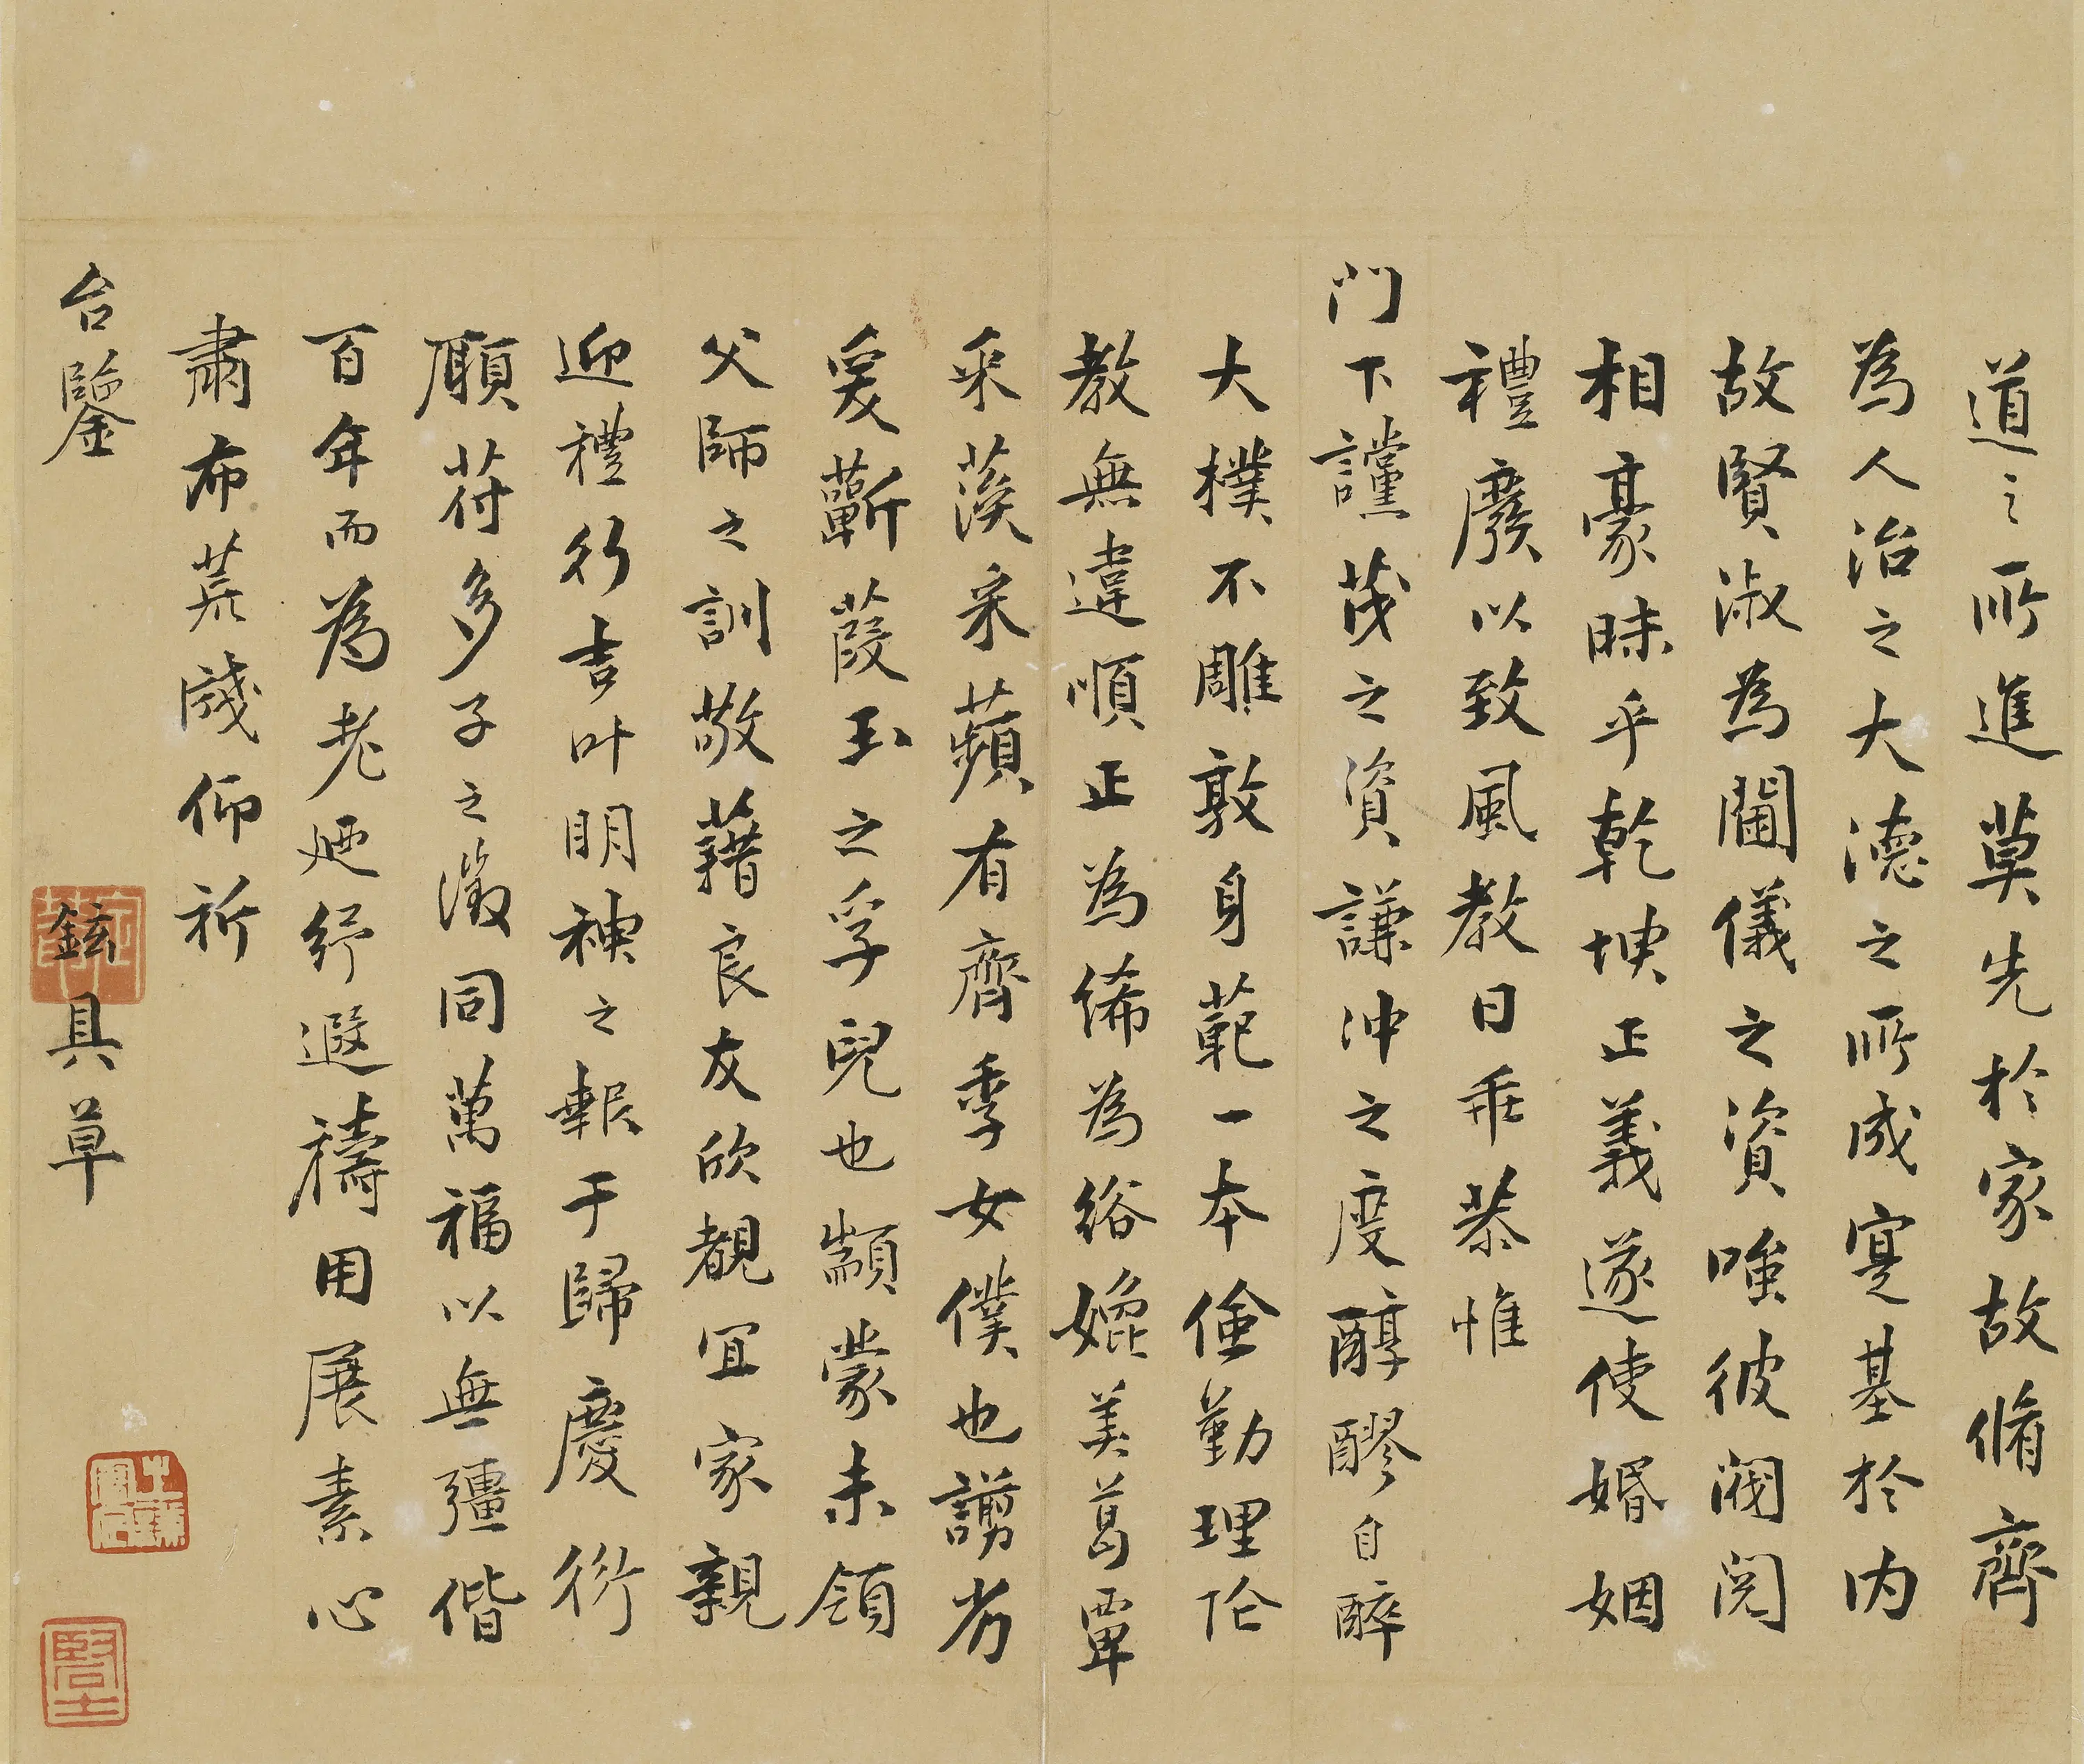 道之所進莫先於家故脩齊
為人治之大德之所成寔基於内
故賢淑為閫儀之資嗤彼閥閱
相豪昧乎乾坤正義遂使婚姻
禮廢以致風教日乖恭惟
門下讜茂之資謙冲之度醇醪自醉
大樸不雕敦身範一本儉勤理伦
教無違順正為絺為綌媲美葛覃
采藻采蘋有齊季女僕也謭劣
爰蘄葭玉之孚兒也顓蒙未領
父師之訓敬藉良友欣覩宜家親
迎禮行吉叶明神之報于歸慶衍
願苻多子之徵同萬福以無疆偕
百年而為老迺紓遐禱用展素心
肅布荒牋仰祈
台鑒
鉉具草